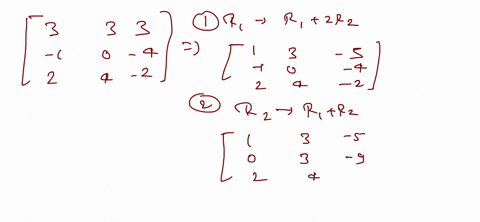 [ 3 3 3
-1 0 -4
2 4 -2 ] =)
① R₁ → R₁ + 2R₂
[ 1 3 -5
-1 0 -4
2 4 -2 ]
② R₂ → R₁ + R₂
[ 1 3 -5
0 3 -9
2 4